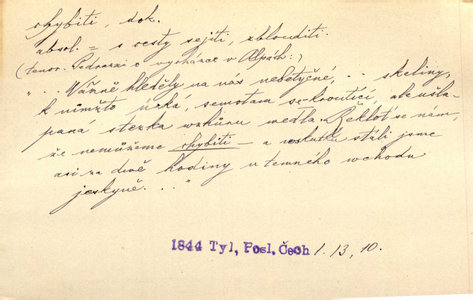 chybiti, dok.
absol. = s cesty sejíti, zblouditi.
(tenor. Podnázní o vycházce v Alpách:)
"... Vážně hleděly na nás nebetyčné, .. skeliny,
k nimžto úzká, semotam se kroutící, ale ušla-
paná stezka vzhůru vedla. Řeklot se nám,
že nemůžeme chybiti – a vskutku stáli jsme
asi za dvě hodiny u temného vchodu
jeskyně. ..."
1844 Tyl, Posl. Čech 1. 13, 10.